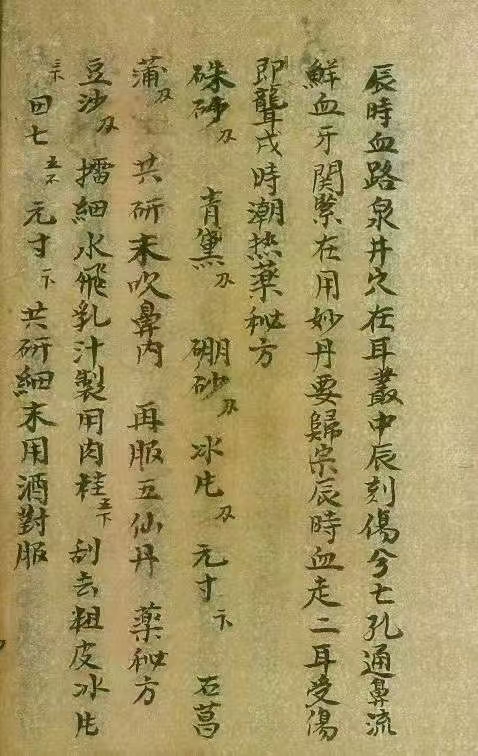 辰時血路泉井穴在耳叢中辰刻傷兮七孔通鼻流
鮮血牙関緊在用妙丹要歸宗辰時血走二耳受傷
即聾戌時潮热藥秘方
硃砂刀 青黛刀 硼砂刀 冰片刀 元寸卞 石菖
蒲刀 共研末吹鼻内 再服五仙丹 藥秘方
豆沙刀 擂細水飛乳汁製用肉桂五下 刮去粗皮冰片
田七 元寸下 共研細末用酒對服